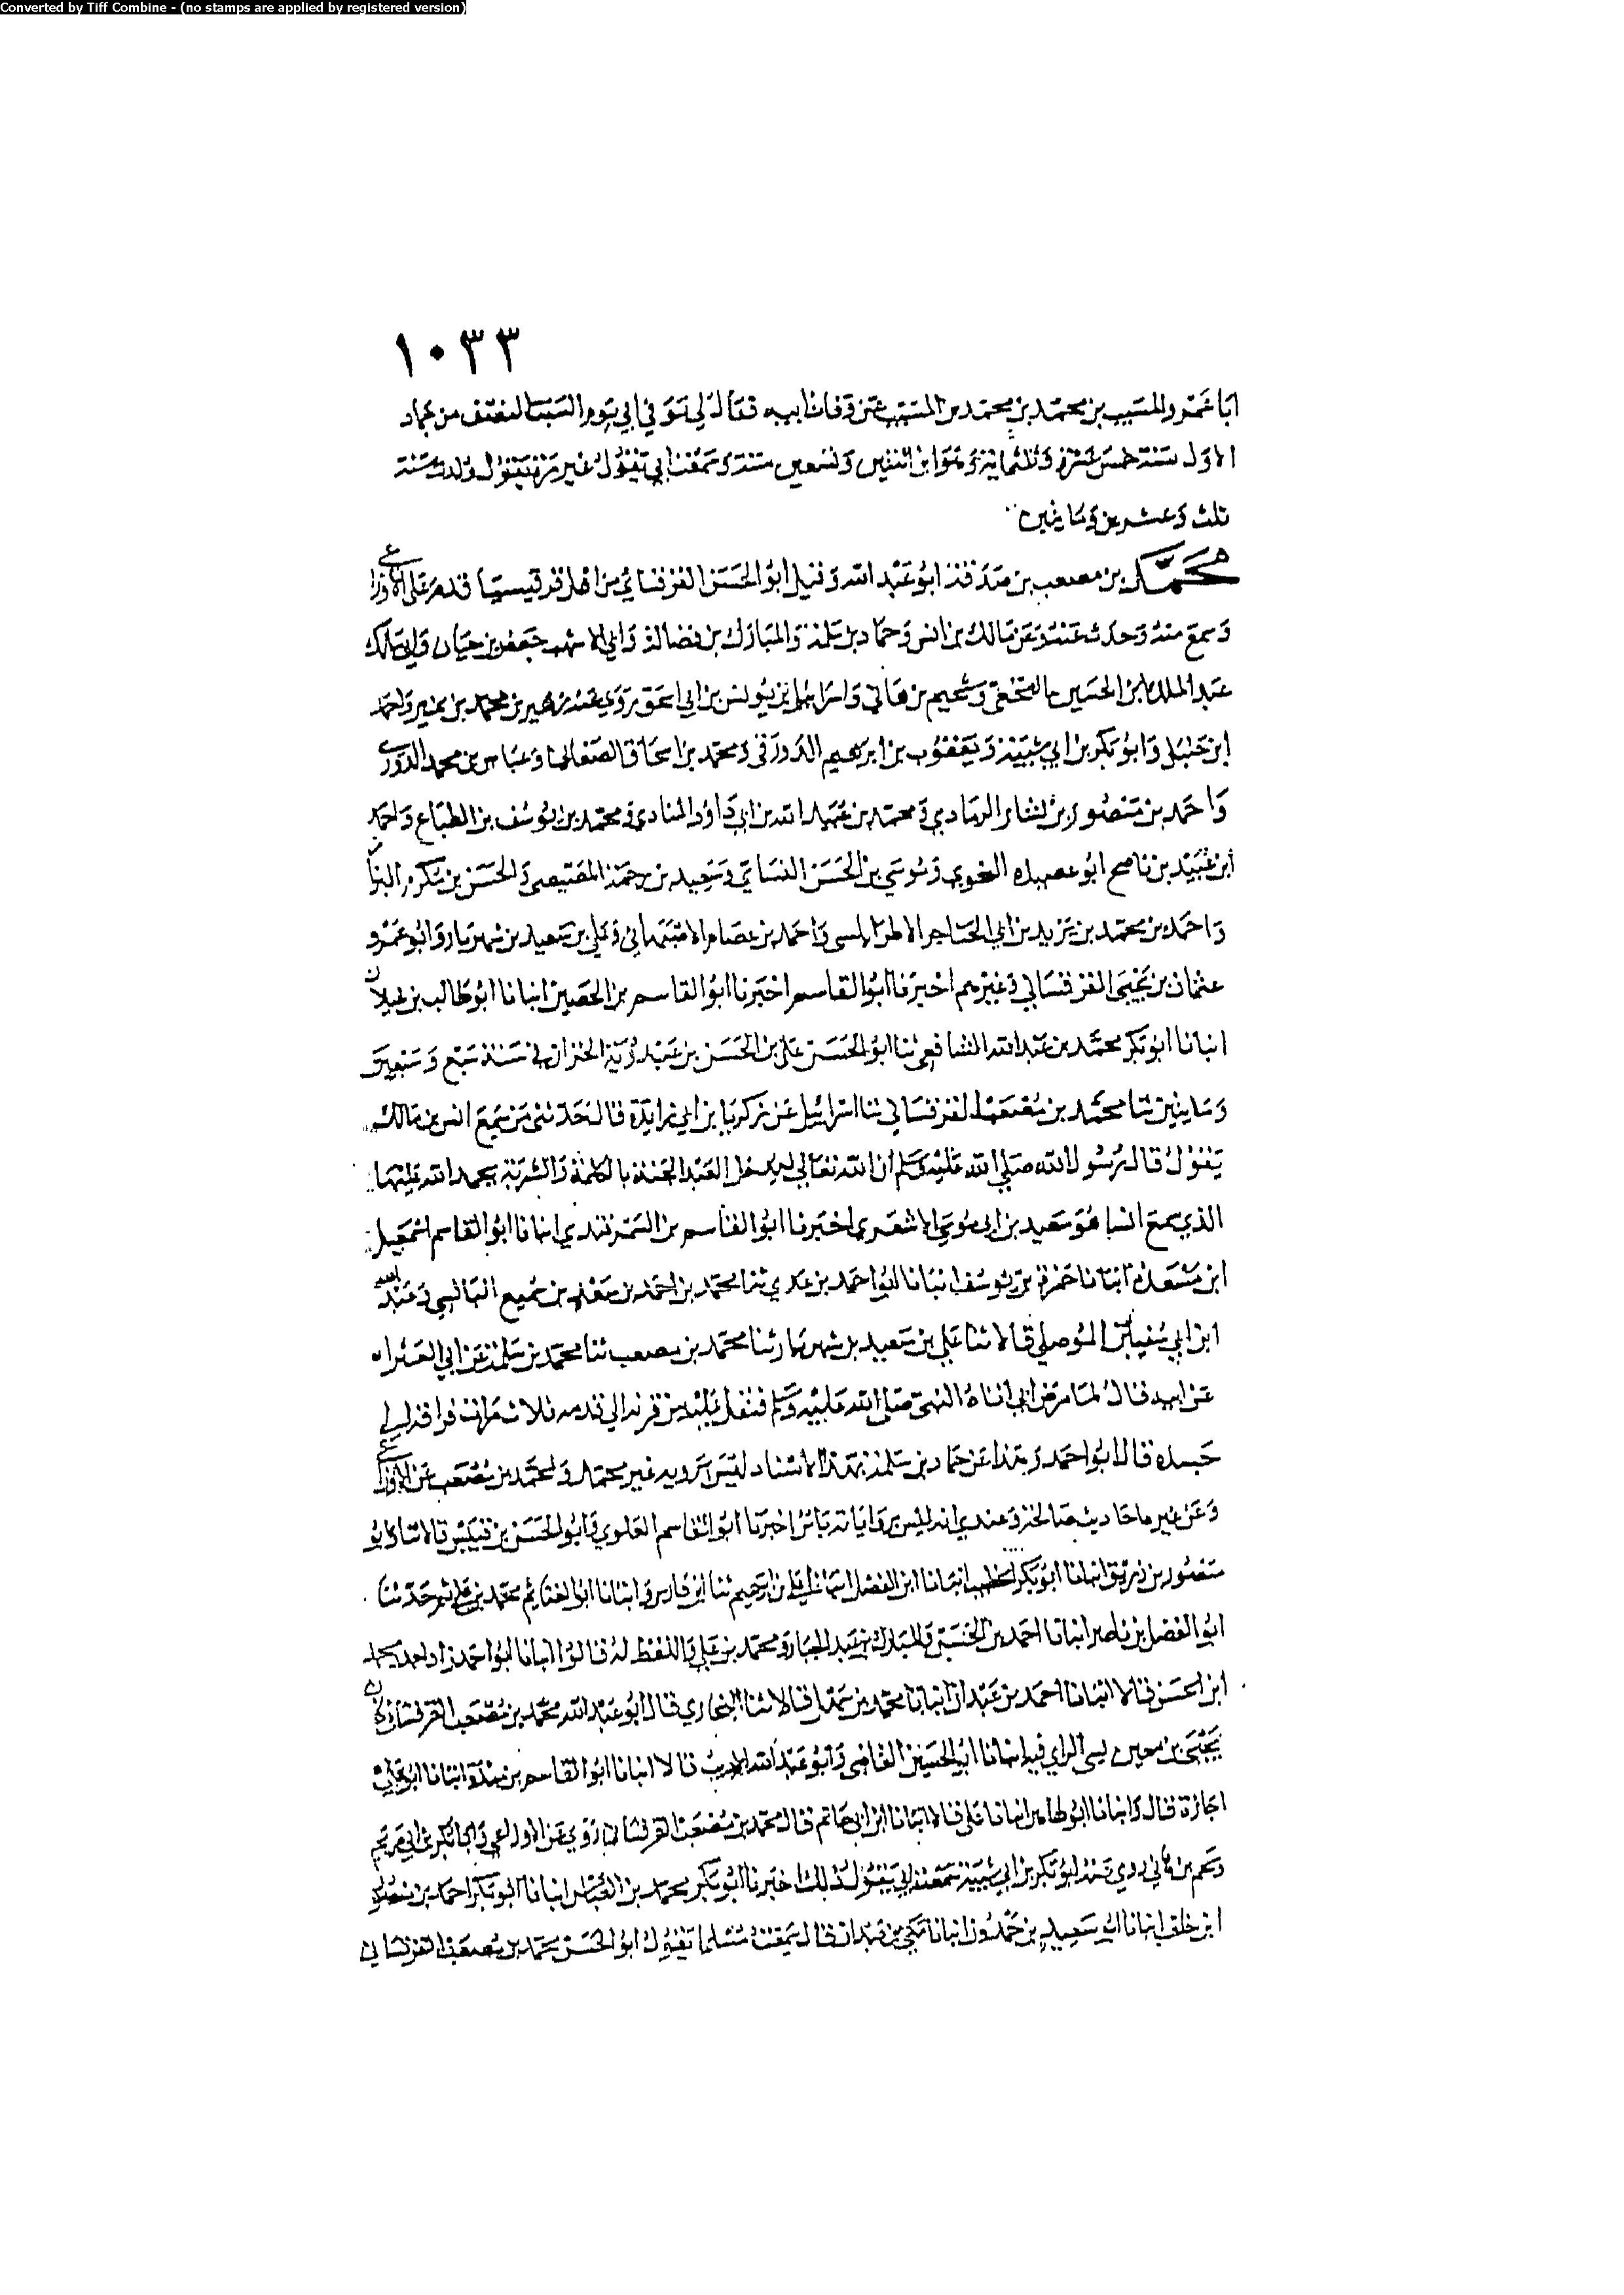 Converted by Tiff Combine - (no stamps are applied by registered version)
١٠٣٣
ابا عمرو المسيب بن محمد بن محمد بن المسيب عن وفاة ابيه فقال لي توفي ابي يوم السبت النصف من جماد
الاول سنة خمس عشرة وثلثماية وهو ابن اثنتين وتسعين سنة وسمعت ابي يقول غير مرة يقول ولدت سنة
ثلث وعشرين ومايتين
محمد بن مصعب بن صدقة ابو عبد الله وقيل ابو الحسن القرقساني من اهل قرقيسيا قدم على الاوزاعي
وسمع منه وحدث عنه وعن مالك بن انس وحماد بن سلمة والمبارك بن فضالة وابي الاشهب جعفر بن حيان وابي مالك
عبد الملك بن الحسين النخعي وسحيم بن هاني واسرائيل بن يونس بن ابي اسحق روى عنه زهير بن محمد بن قمير واحمد
ابن حنبل وابو بكر بن ابي شيبة ويعقوب بن ابرهيم الدورقي ومحمد بن اسحاق الصغاني وعباس بن محمد الدوري
واحمد بن منصور بن الرمادي ومحمد بن عبيد الله بن ابي داود المنادي ومحمد بن يوسف بن الطباع واحمد
ابن عبيد بن ناصح ابو عصيدة النحوي وموسى بن الحسن وسعيد بن رحمة المصيصي والحسن بن مكرم البزا
واحمد بن محمد بن يزيد بن ابي الحناجر الاطرابلسي واحمد بن عصام الاصبهاني وعلي بن سعيد بن شهريار وابو عمرو
عثمان بن يحيى القرقساني وغيرهم اخبرنا ابو القاسم اخبرنا ابو القاسم بن الحصين انبانا ابو طالب بن غيلان
انبانا ابو بكر محمد بن عبد الله الشافعي ثنا ابو الحسن علي بن الحسن بن عبدوية الخزاز في سنة سبع وسبعين
ومايتين ثنا محمد بن مصعب القرقساني ثنا اسرائيل عن زكريا بن ابي زايدة قال حدثني من سمع انس بن مالك
يقول قال رسول الله صلى الله عليه وسلم ان الله تعالى ليدخل العبد الجنة بالاكلة والشربة يحمد الله عليها
الذي سمع انسا هو سعيد بن ابي موسى الاشعري اخبرنا ابو القاسم بن السمرقندي انبانا ابو القاسم اسمعيل
ابن مسعدة انبانا حمزة بن يوسف انبانا ابو احمد بن عدي ثنا محمد بن احمد بن سميع البالسي وعبد الله
ابن ابي سفيان الموصلي قالا ثنا علي بن سعيد بن شهريار ثنا محمد بن مصعب ثنا محمد بن سلمة عن ابي العشراء
عن ابيه قال لما مرض ابي اتاه النبي صلى الله عليه وسلم فتفل عليه من قرنه الى قدمه ثلاث مرات
جسده قال ابو احمد وهذا عن حماد بن سلمة بهذا الاسناد ليس يرويه غير محمد ولمحمد بن مصعب عن الاوزاعي
وعن غيره احاديث صالحة وعندي انه ليس برواياته باس اخبرنا ابو القاسم العلوي وابو الحسن بن قبيس قالا ثنا وابو
منصور بن زريق انبانا ابو بكر الخطيب انبانا ابن الفضل انبانا علي بن ابرهيم ثنا ابن فارس وانبانا ابو الغنايم محمد بن علي ثم حدثنا
ابو الفضل بن ناصر انبانا احمد بن الحسن والمبارك بن عبد الجبار ومحمد بن علي واللفظ له قالوا انبانا ابو احمد زاد احمد ومحمد
ابن الحسن قالا انبانا احمد بن عبدان انبانا محمد بن سهل قالا ثنا البخاري قال ابو عبد الله محمد بن مصعب القرقساني كان
يحيى بن معين سيئ الراي فيه انبانا ابو الحسين القاضي وابو عبد الله الاديب قالا انبانا ابو القاسم بن مندة انبانا ابو علي
اجازة قال وانبانا ابو طاهر انبانا علي قالا انبانا ابن ابي حاتم قال محمد بن مصعب القرقساني روى عن الاوزاعي وابي بكر بن ابي مريم
وسحيم بن هاني روى عنه ابو بكر بن ابي شيبة سمعت ابي يقول ذلك اخبرنا ابو بكر محمد بن العباس انبانا ابو بكر احمد بن منصور
ابن خلف انبانا ابو سعيد بن حمدون انبانا مكي بن عبدان قال سمعت مسلما يقول ابو الحسن محمد بن مصعب القرقساني